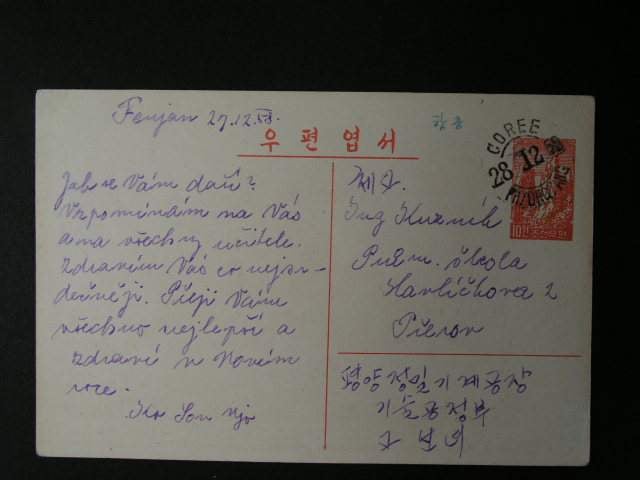 Fenjan 27.12.58.
우편엽서
항공
COREE
28 12
10전
Jak se Vám daří?
Vzpomínám na Vás
a na všechny učitele.
Zdravím Vás co nejsr-
dečněji. Přeji Vám
všechno nejlepší a
zdraví v Novém
roce.
Son
체코
Ing Kuzník
Prům. škola
Havlíčkova 2
Přerov
평양정밀기계공장
기술공정부